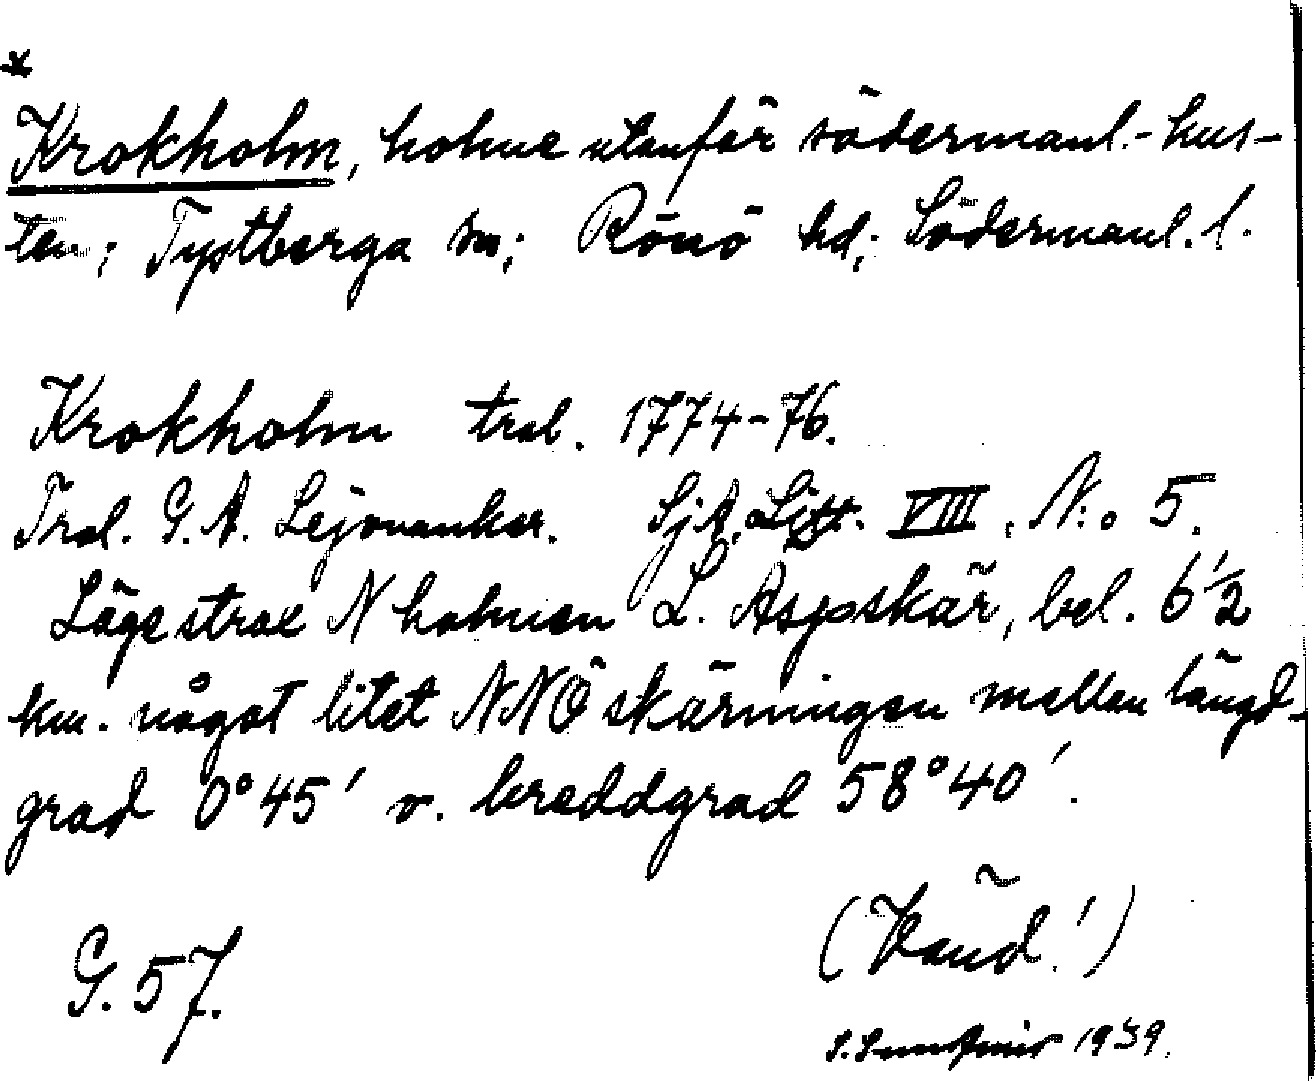 *
Krokholm, holme utanför södermanl.-kus-
ten; Tystberga sn; Rönö hd; Södermanl. l.
Krokholm tral. 1774-76.
Tral. G. A. Lejonanker. SjA. Litt. VIII, N:o 5.
Läge strax N holmen L. Aspskär, bel. 6 1/2
km. något litet NNÖ skärningen mellan längd-
grad 0° 45' o. breddgrad 58° 40'.
(Vänd!)
G. 57.
1939.